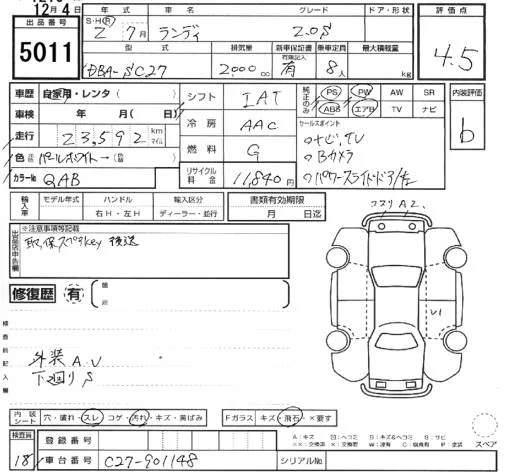 12月4日
出品番号 年式 車名 グレード ドア・形状 評価点
5011 S・H(R) 2 7月 ランディ 2.0S 4.5
型式 排気量 新車保証書 有限記入 乗車定員 最大積載量
DBA-SC27 2,000cc 有 8人 kg
車歴 自家用・レンタ( ) シフト IAT 純正のみ PS PW AW SR 内装評価
車検 年 月( 日) 冷房 AAC ABS エアB TV ナビ b
走行 23,592 km マイル セールスポイント
色 パールホワイト→ 燃料 G ○ナビ,TV
○Bカメラ
カラーNo QAB リサイクル料金 11,840円 ○パワースライドドア/左
輸入車 モデル年式 ハンドル 輸入区分 書類有効期限
右H・左H ディーラー・並行 月 日迄
コスリA2,
※注意事項等記載
取,保スペアkey 後送
修復歴 有
V1
外装 A,V
下廻りS
内装シート 穴・破れ・スレ コゲ・汚れ・キズ・黄ばみ Fガラス キズ・飛石・×要す
スペア
検査員 登録番号
18 車台番号 C27-901148 シリアルNo